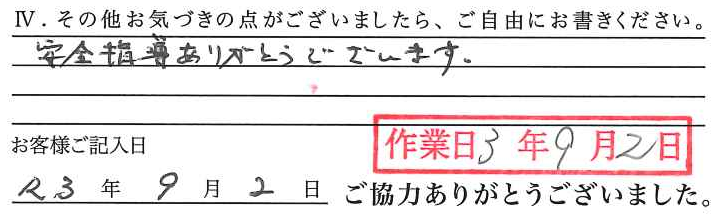 Ⅳ．その他お気づきの点がございましたら、ご自由にお書きください。
安全指導ありがとうございます。
お客様ご記入日
作業日3年9月2日
R3年9月2日
ご協力ありがとうございました。